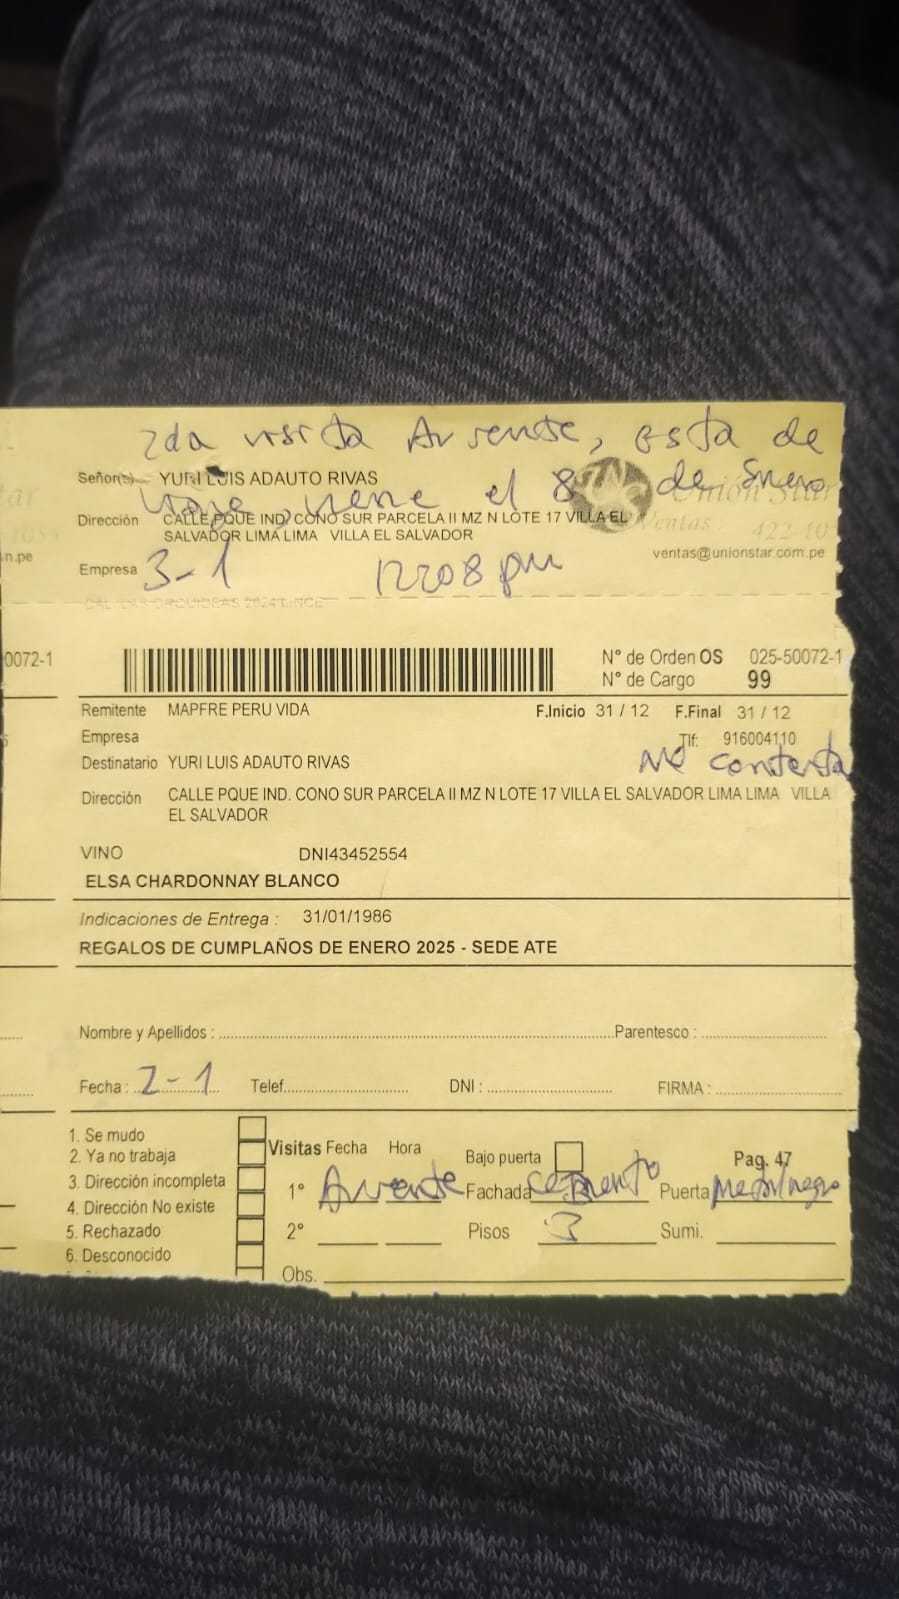 2da visita Ausente, esta de
Señor(s) YURI LUIS ADAUTO RIVAS
viaje, viene el 8 de Enero
Unión Star
Dirección CALLE PQUE IND. CONO SUR PARCELA II MZ N LOTE 17 VILLA EL
SALVADOR LIMA LIMA VILLA EL SALVADOR
Ventas 422-10
n.pe
ventas@unionstar.com.pe
Empresa 3-1 12:08 pm
0072-1
N° de Orden OS 025-50072-1
N° de Cargo 99
Remitente MAPFRE PERU VIDA F.Inicio 31 / 12 F.Final 31 / 12
Empresa Tlf: 916004110
Destinatario YURI LUIS ADAUTO RIVAS No contesta
Dirección CALLE PQUE IND. CONO SUR PARCELA II MZ N LOTE 17 VILLA EL SALVADOR LIMA LIMA VILLA
EL SALVADOR
VINO DNI43452554
ELSA CHARDONNAY BLANCO
Indicaciones de Entrega : 31/01/1986
REGALOS DE CUMPLAÑOS DE ENERO 2025 - SEDE ATE
Nombre y Apellidos : Parentesco :
Fecha : 2-1 Telef. DNI : FIRMA :
1. Se mudo
2. Ya no trabaja
3. Dirección incompleta
4. Dirección No existe
5. Rechazado
6. Desconocido
Visitas Fecha Hora Bajo puerta Pag. 47
1° Ausente Fachada cemento Puerta Metal negro
2° Pisos 3 Sumi.
Obs.